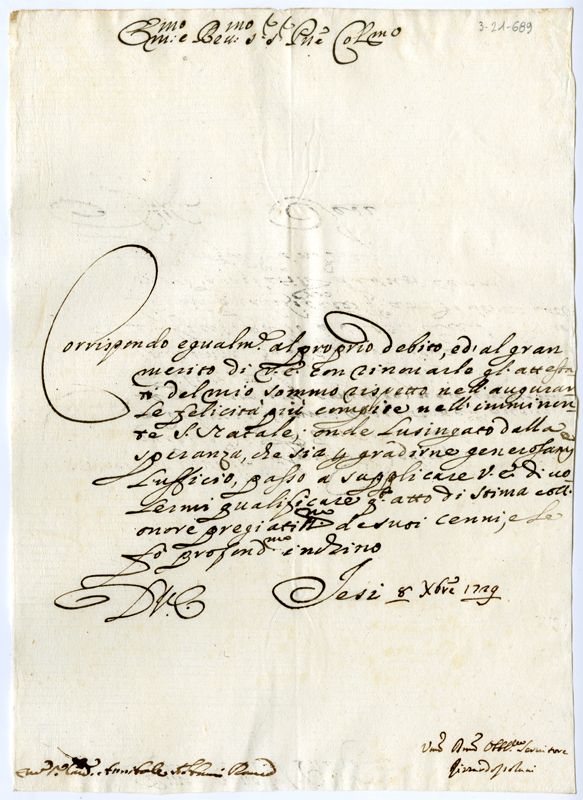 3-21-689
Em:mo e Rev:mo S.r S.r P.ne Col.mo
Corrispondo egualm.te al proprio debito, ed al gran
merito di V. E. con rinovarle gl'attesta
ti del mio sommo rispetto nell'augurar
Le felicità più compite nell'imminen
te S. Natale; onde lusingato dalla
speranza, che sia p gradirne generosam.te
l'uffició, passo a supplicare V. E. di vo
lermi qualificare q.to atto di stima coll'
onore pregiatiss.mo de suoi cenni, e le
fò profond.mo inchino
D. V. E.
Jesi 8 Xbre 1729
Vmo Dmo Obblmo Servitore
Card. Annibale Albani Roma